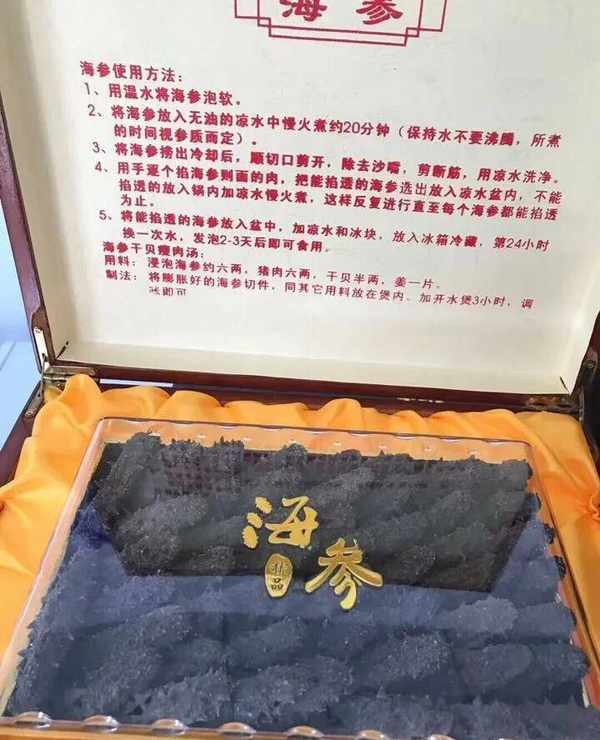 海参
海参使用方法：
1、用温水将海参泡软。
2、将海参放入无油的凉水中慢火煮约20分钟（保持水不要沸腾，所煮
的时间视参质而定）。
3、将海参捞出冷却后，顺切口剪开，除去沙嘴，剪断筋，用凉水洗净。
4、用手逐个掐海参则面的肉，把能掐透的海参选出放入凉水盆内，不能
掐透的放入锅内加凉水慢火煮，这样反复进行直至每个海参都能掐透
为止。
5、将能掐透的海参放入盆中，加凉水和冰块，放入冰箱冷藏，第24小时
换一次水，发泡2-3天后即可食用。
海参干贝瘦肉汤：
用料：浸泡海参约六两，猪肉六两，干贝半两，姜一片。
制法：将膨胀好的海参切件，同其它用料放在煲内。加开水煲3小时，调
味即可
海参
精品